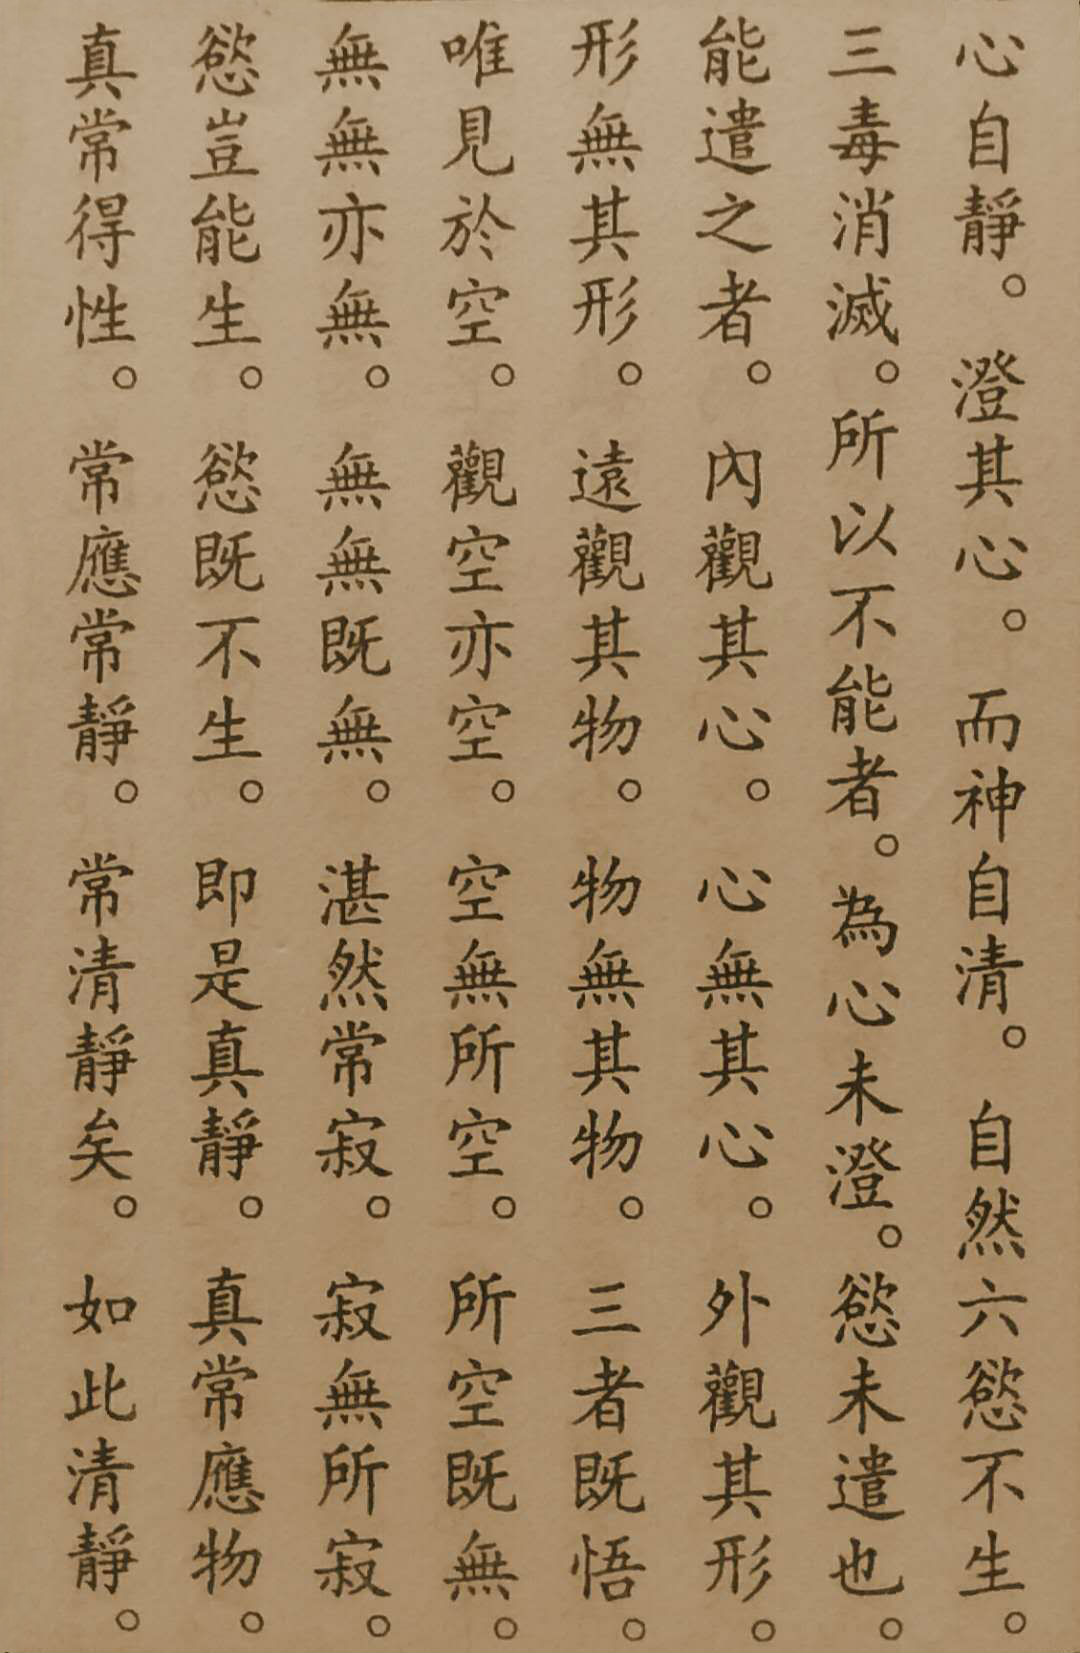 心自靜。澄其心。而神自清。自然六慾不生。
三毒消滅。所以不能者。為心未澄。慾未遣也。
能遣之者。內觀其心。心無其心。外觀其形。
形無其形。遠觀其物。物無其物。三者既悟。
唯見於空。觀空亦空。空無所空。所空既無。
無無亦無。無無既無。湛然常寂。寂無所寂。
慾豈能生。慾既不生。即是真靜。真常應物。
真常得性。常應常靜。常清靜矣。如此清靜。